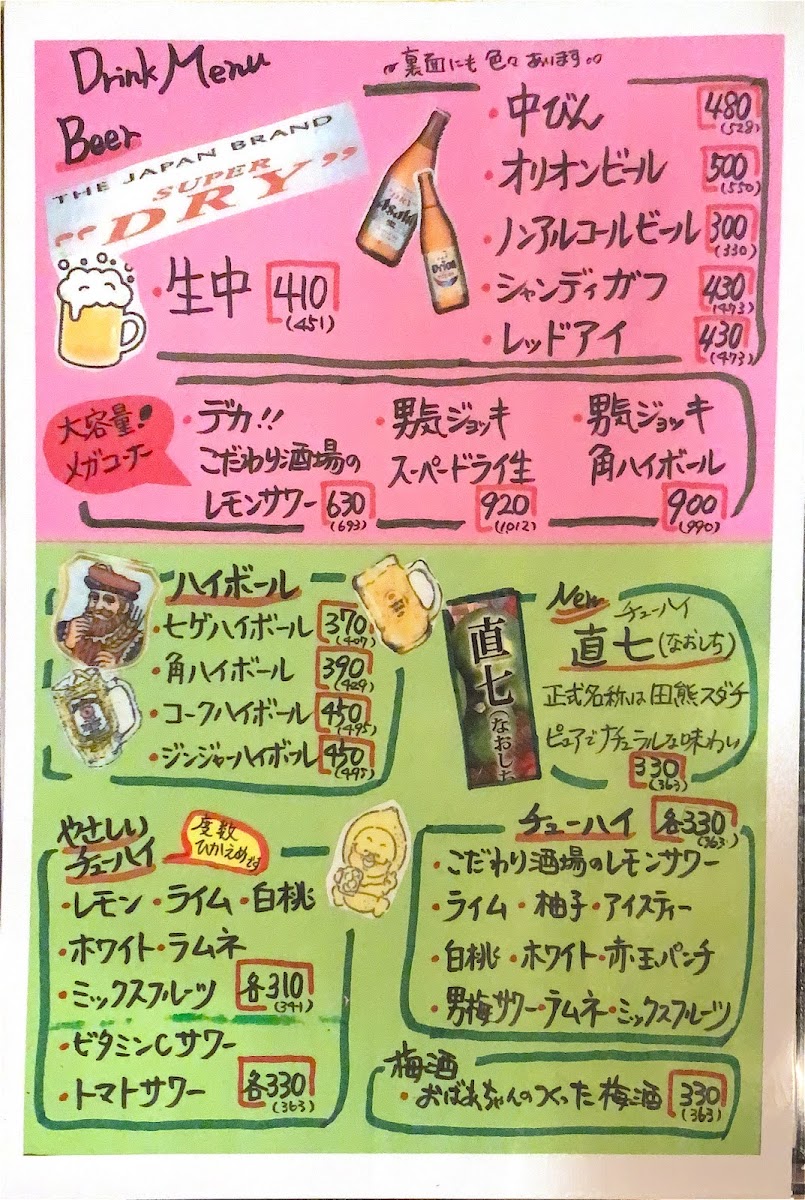 Drink Menu
裏面にも色々あります
Beer
THE JAPAN BRAND
SUPER
"DRY"
・生中 410
(451)
Asahi
Orion
・中びん 480
(528)
・オリオンビール 500
(550)
・ノンアルコールビール 300
(330)
・シャンディガフ 430
(473)
・レッドアイ 430
(473)
大容量!
メガコーナー
・デカ!!
こだわり酒場の
レモンサワー 630
(693)
・男気ジョッキ
スーパードライ生
920
(1012)
・男気ジョッキ
角ハイボール
900
(990)
ハイボール
・七ゲハイボール 370
(407)
・角ハイボール 390
(429)
・コークハイボール 450
(495)
・ジンジャーハイボール 450
(495)
直七(なおしち
New
チューハイ
直七(なおしち)
正式名称は田熊スダチ
ピュアでナチュラルな味わい
330
(363)
やさしい
チューハイ
度数
ひかえめです
・レモン・ライム・白桃
・ホワイト・ラムネ
・ミックスフルーツ 各310
(341)
・ビタミンCサワー
・トマトサワー 各330
(363)
チューハイ 各330
(363)
・こだわり酒場のレモンサワー
・ライム・柚子・アイスティー
・白桃・ホワイト・赤玉パンチ
・男梅サワー・ラムネ・ミックスフルーツ
梅酒
・おばあちゃんのつくった梅酒 330
(363)